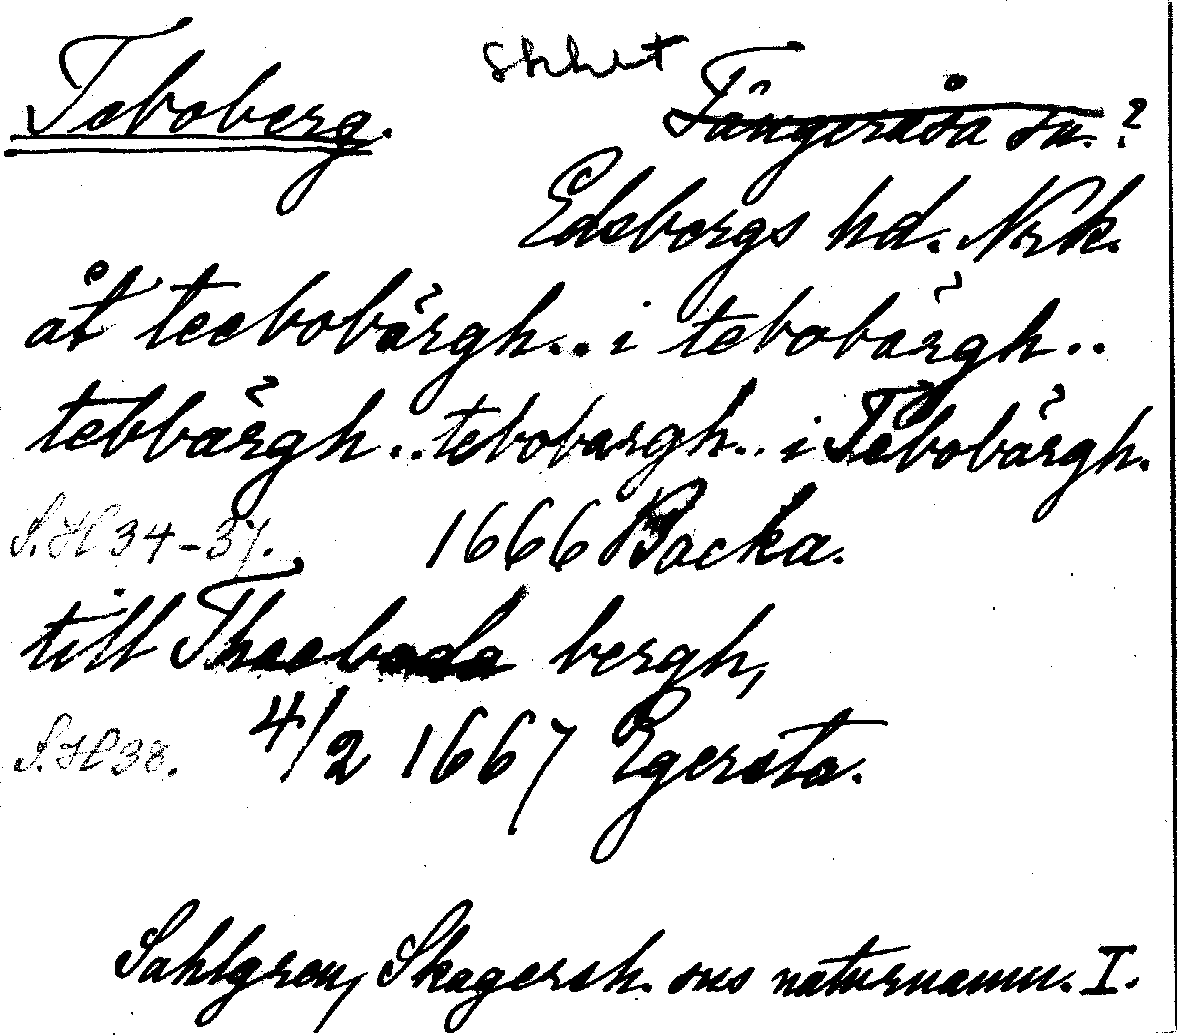 Teboberg. skhet Tångeråsa sn. ?
Edsbergs hd. Nrk.
åt teebobärgh.. i tebobärgh..
tebbärgh.. tebobargh.. i Tebobärgh.
S.H 34-37. 1666 Backa.
till Theeboda bergh,
S.H 38. 4/2 1667 Egersta.
Sahlgren, Skagersh. sns naturnamn. I.